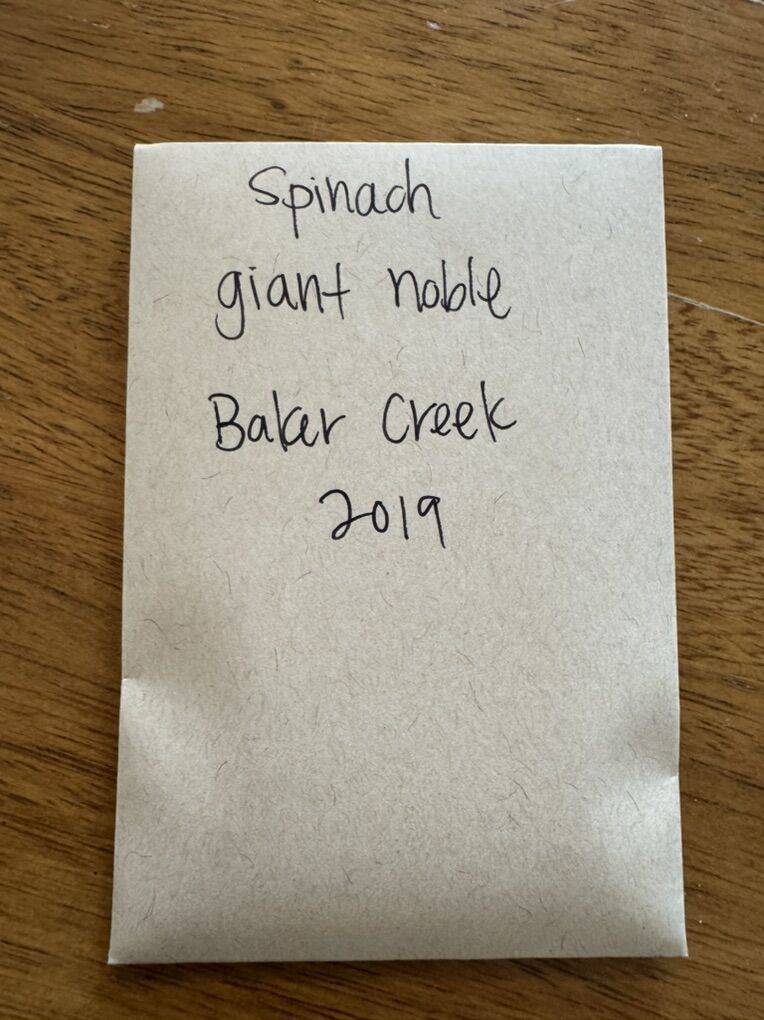 Spinach
giant noble
Baker Creek
2019